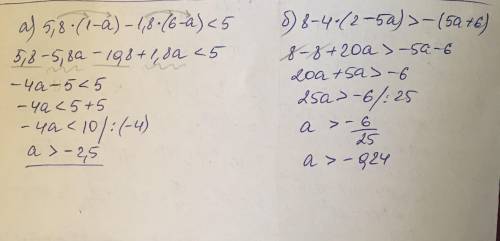 а) 5,8·(1-a)-1,8·(6-a)<5
5,8-5,8a-10,8+1,8a<5
-4a-5<5
-4a<5+5
-4a<10/:(-4)
a>-2,5
б) 8-4·(2-5a)>-(5a+6)
8-8+20a>-5a-6
20a+5a>-6
25a>-6/:25
a>-6/25
a>-0,24